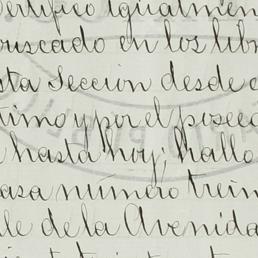 ertifico igualmen
buscado en los libr
sta Seccion desde e
timo y por el posee
hasta hoy; hallo
asa número trein
le de la Avenida